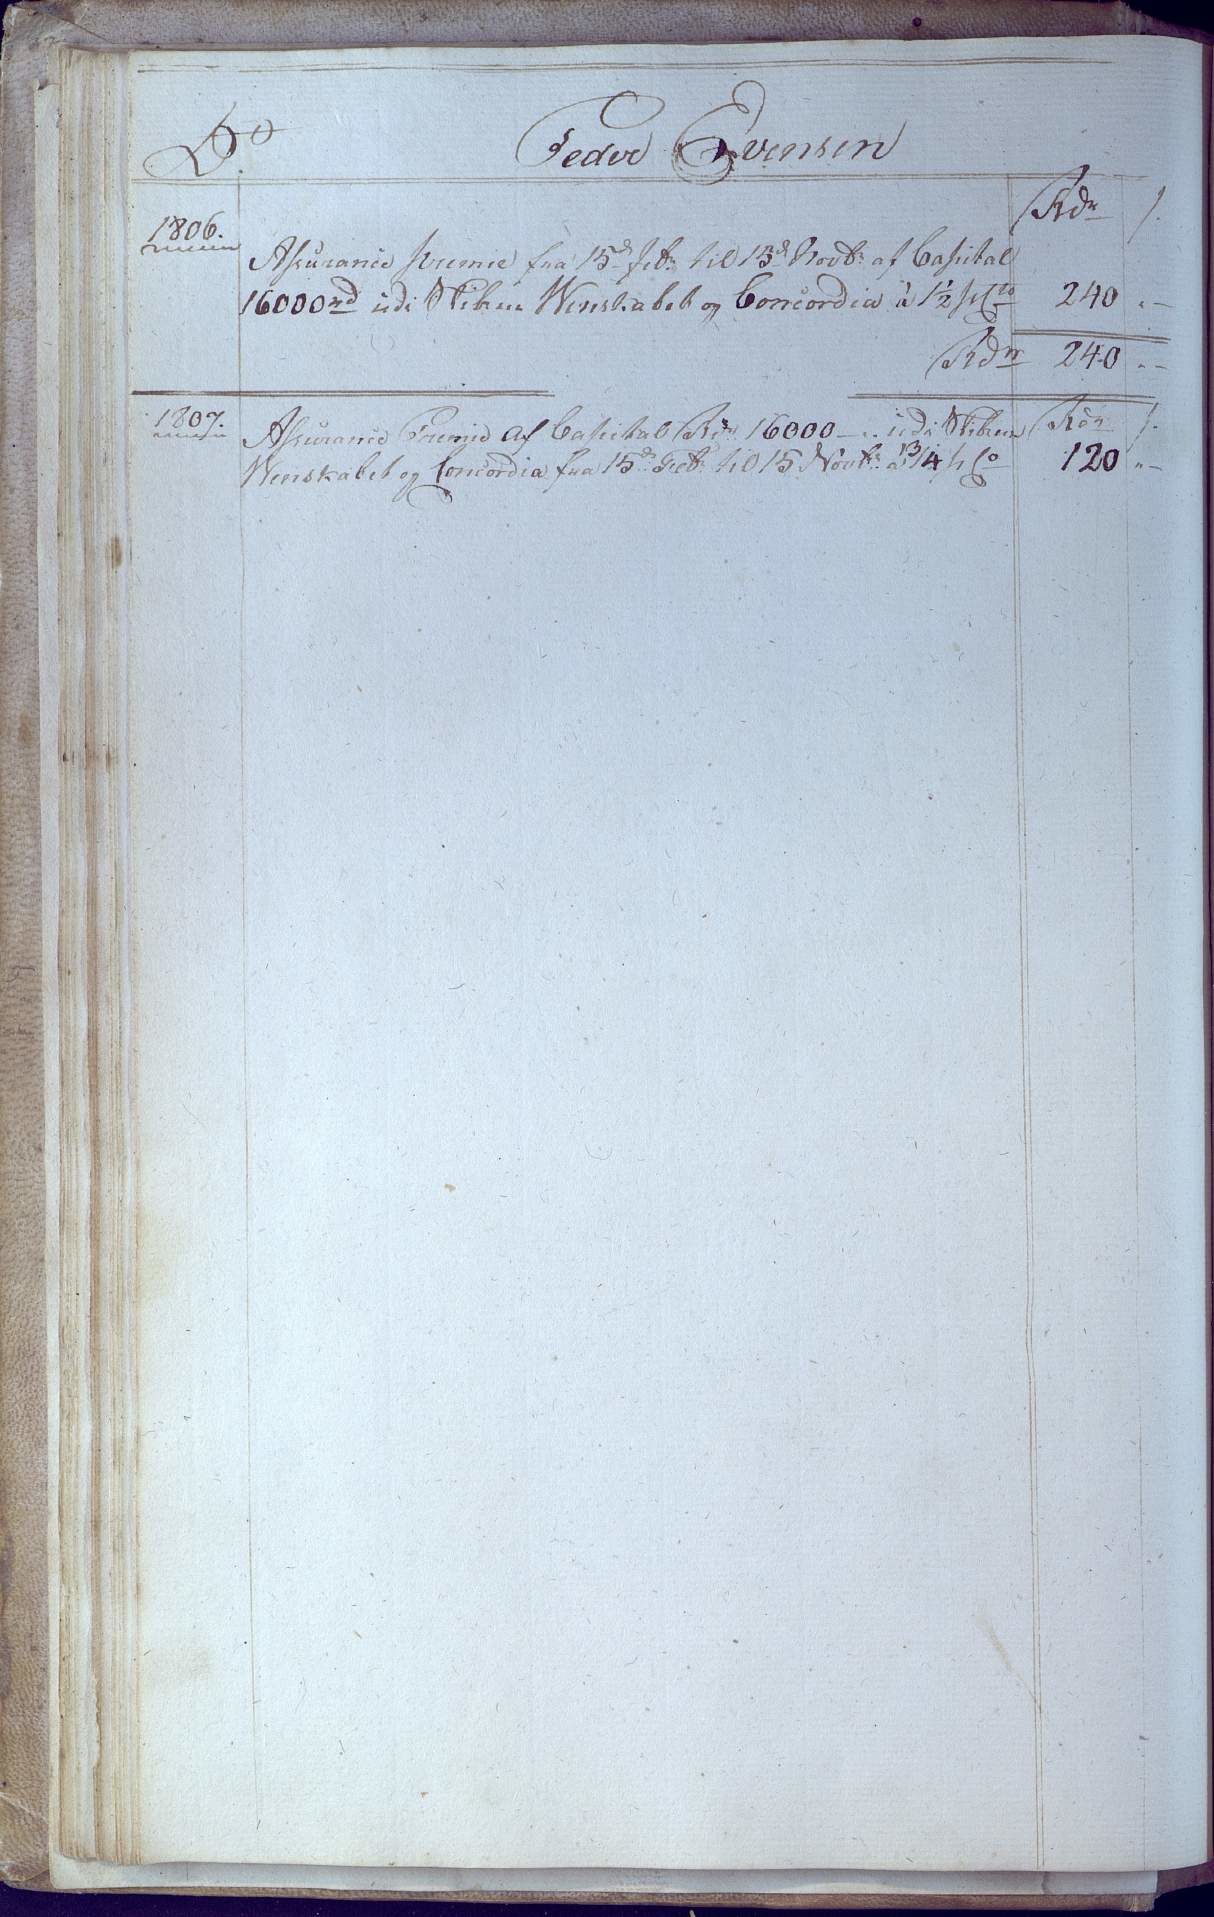 Do Peder Evensen
Rdr ſ.
1806.
Assurance præmie fra 15d Feb: til 15d Novb: af Capital
16000rd udi Skibene Wenskabet og Concordia à 1½ pCto 240 "–
Rdr 240 "–
1807. Assurance Premie af Capital Rdr 16000 – " udi Skibene Rdr ſ.
Wenskabet og Concordia fra 15d Feb: til 15 Novb: à ¾ pCo 120 "–